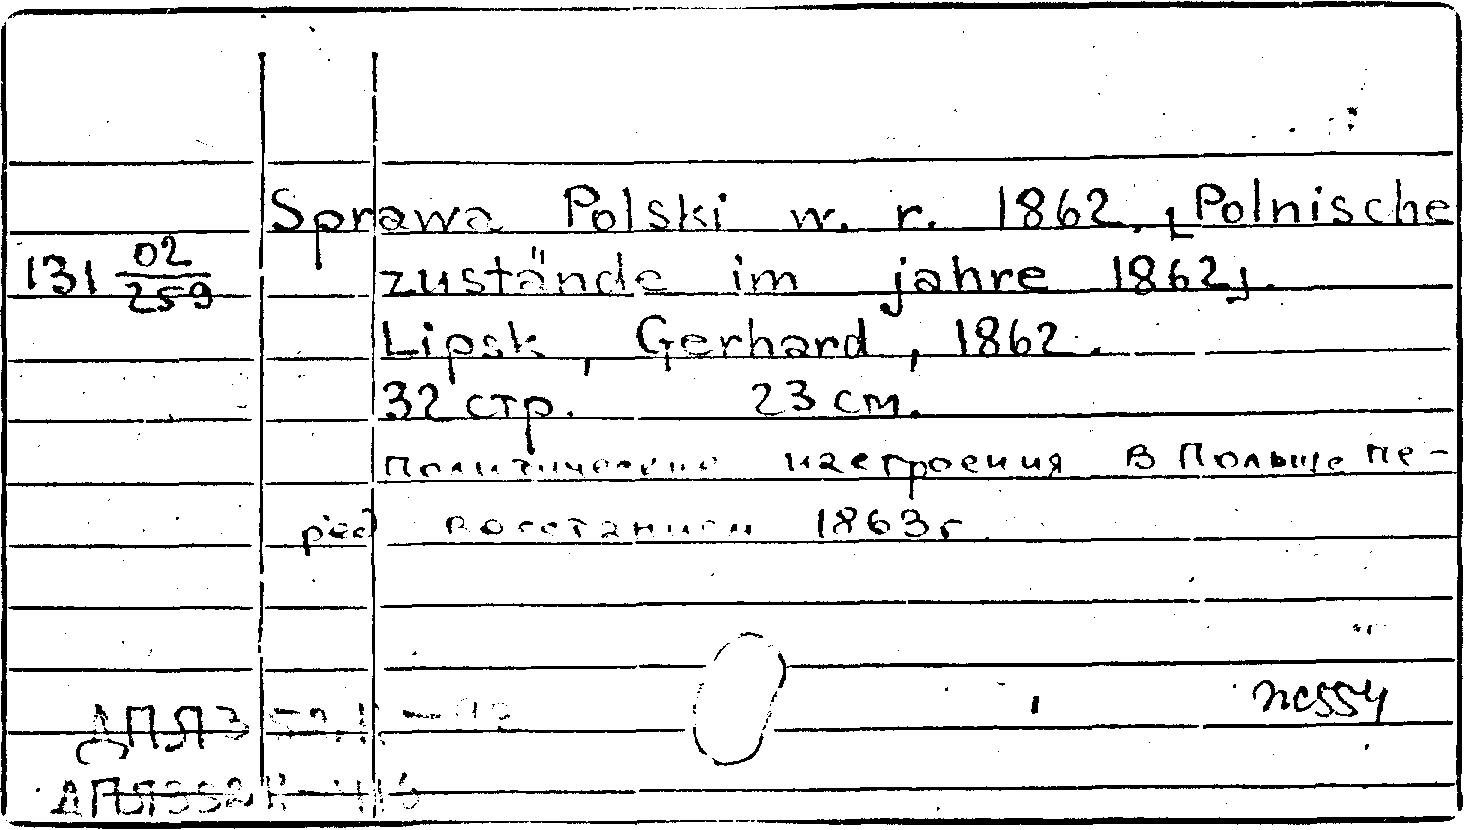 Sprawa Polski w. r. 1862. [Polnische
131 02/259 zustände im jahre 1862].
Lipsk, Gerhard, 1862.
32 стр. 23 см.
Политические настроения в Польше пе-
ред восстанием 1863г
пс554